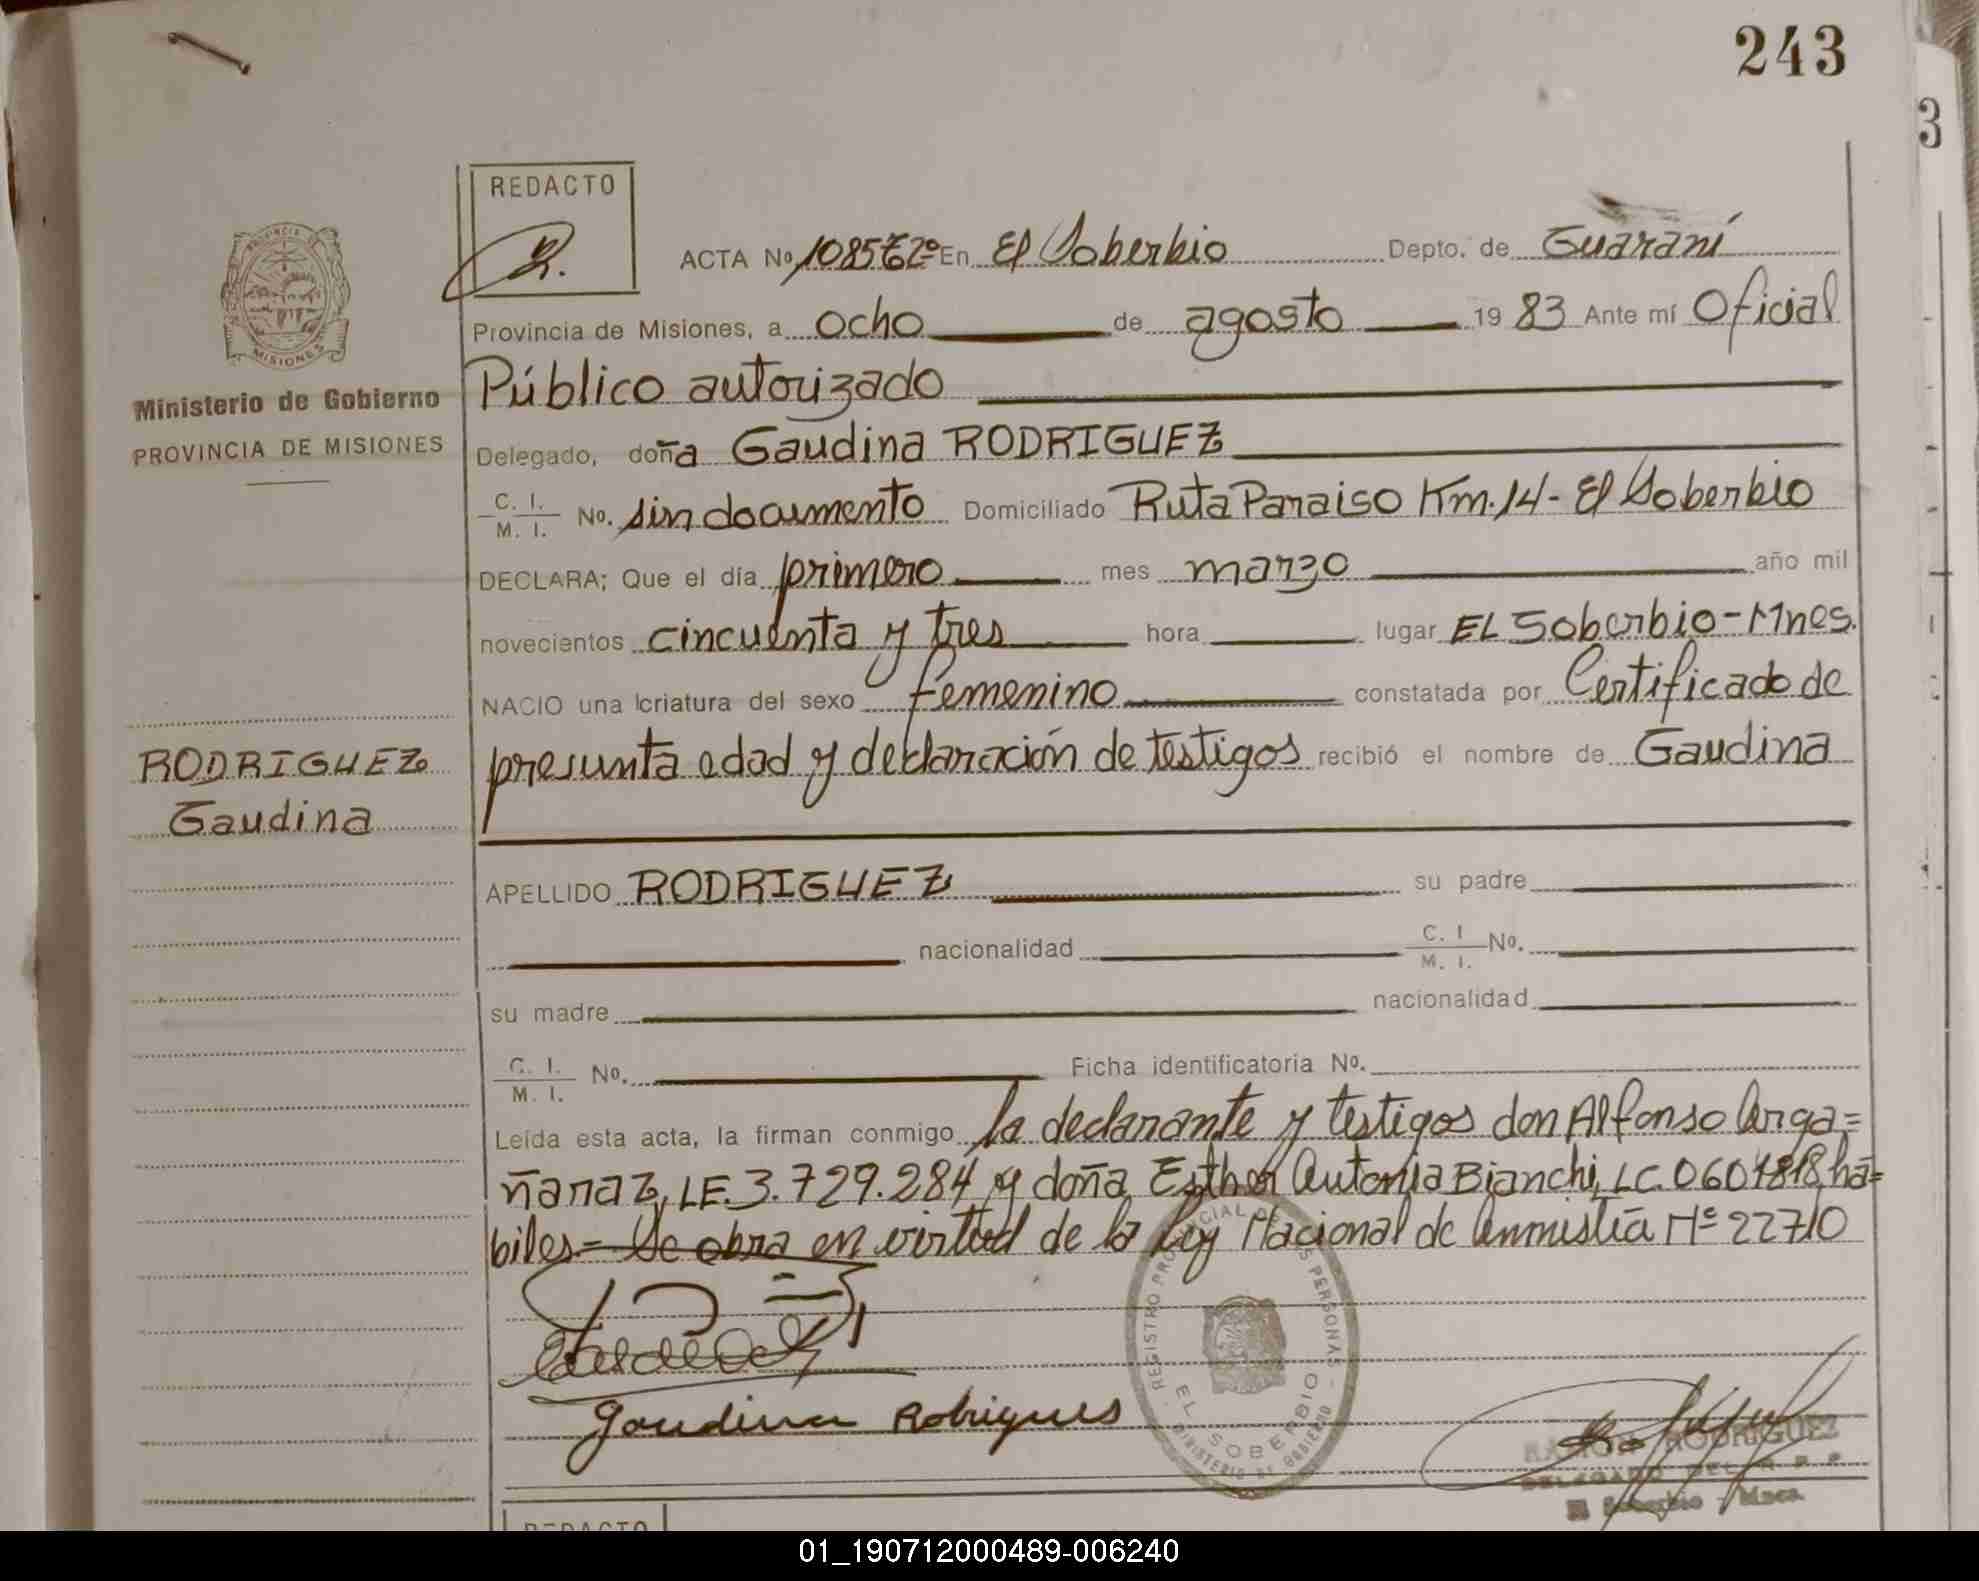 243
3
REDACTO
PROVINCIA DE
MISIONES
Ministerio de Gobierno
PROVINCIA DE MISIONES
ACTA No. En El Soberbio Depto. de Guaraní
Provincia de Misiones, a ocho de agosto 1983 Ante mí Oficial
Público autorizado
Delegado, doña Gaudina RODRIGUEZ
C. I.
M. I. No. sin documento Domiciliado Ruta Paraiso Km. 14 - El Soberbio
DECLARA; Que el día primero mes marzo año mil
novecientos cincuenta y tres hora lugar EL Soberbio - Mnes.
NACIO una criatura del sexo femenino constatada por Certificado de
presunta edad y declaración de testigos recibió el nombre de Gaudina
RODRIGUEZ
Gaudina
APELLIDO RODRIGUEZ su padre
nacionalidad C. I
M. I. No.
su madre nacionalidad
C. I.
M. I. No. Ficha identificatoria No.
Leída esta acta, la firman conmigo la declarante y testigos don Alfonso Arga=
ñaraz, LE. 3.729.284 y doña Esther Antonia Bianchi, LC. há=
biles= Se obra en virtud de la Ley Nacional de Ammistía Nº 22710
Gaudina Rodrigues
REGISTRO PROVINCIAL DE LAS PERSONAS
EL SOBERBIO
MINISTERIO DE GOBIERNO
RAMON RODRIGUEZ
DELEGADO DEL R. P. P.
El Soberbio - Mnes.
REDACTO
01_190712000489-006240